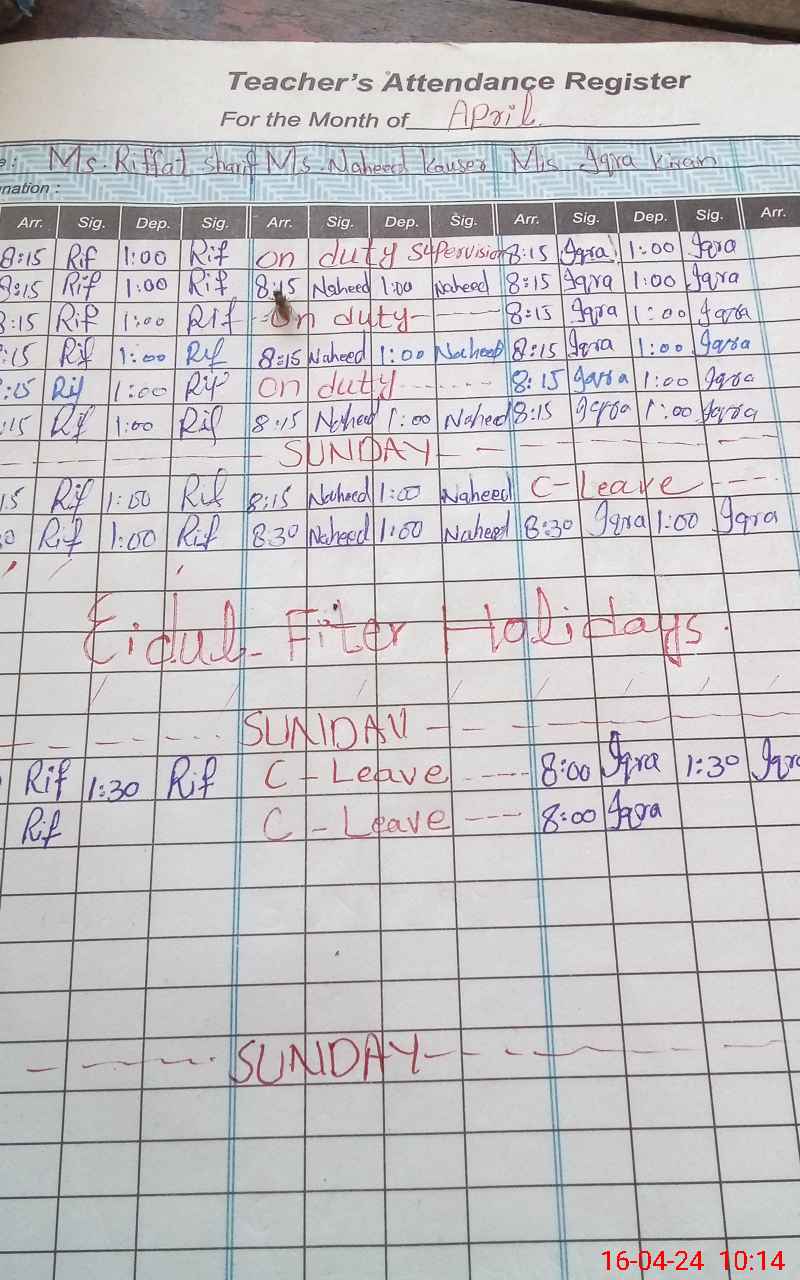 Teacher's Attendance Register
For the Month of April
Ms. Riffat Sharif Ms. Naheed Kauser Mis Iqra Kiran
nation :
Arr. Sig. Dep. Sig. Arr. Sig. Dep. Sig. Arr. Sig. Dep. Sig. Arr.
8:15 Rif 1:00 Rif on duty Supervision 8:15 Iqra 1:00 Iqra
8:15 Rif 1:00 Rif 8:15 Naheed 1:00 Naheed 8:15 Iqra 1:00 Iqra
8:15 Rif 1:00 Rif on duty 8:15 Iqra 1:00 Iqra
:15 Rif 1:00 Rif 8:15 Naheed 1:00 Naheed 8:15 Iqra 1:00 Iqra
:15 Rif 1:00 Rif on duty 8:15 Iqra 1:00 Iqra
:15 Rif 1:00 Rif 8:15 Naheed 1:00 Naheed 8:15 Iqra 1:00 Iqra
SUNDAY
15 Rif 1:00 Rif 8:15 Naheed 1:00 Naheed C-Leave
0 Rif 1:00 Rif 8:30 Naheed 1:00 Naheed 8:30 Iqra 1:00 Iqra
Eidul-Fiter Holidays.
SUNDAY
Rif 1:30 Rif C-Leave 8:00 Iqra 1:30 Iqra
Rif C-Leave 8:00 Iqra
SUNDAY
16-04-24 10:14